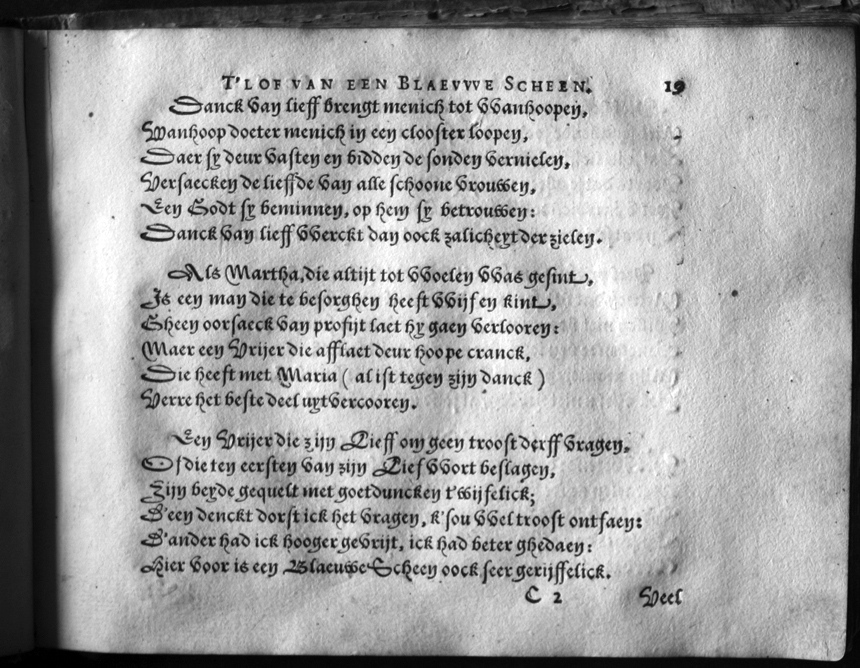 T'LOF VAN EEN BLAEVWE SCHEEN. 19
Danck van lieff brengt menich tot VVanhoopen,
Wanhoop doeter menich in een clooster loopen,
Daer sy deur vasten en bidden de sonden vernielen,
Versaecken de lieffde van alle schoone vrouwen,
Een Godt sy beminnen, op hem sy betrouwen:
Danck van lieff VVerckt dan oock zalicheyt der zielen.
Als Martha, die altijt tot VVoelen VVas gesint,
Is een man die te besorghen heeft VVijf en kint,
Gheen oorsaeck van profijt laet hy gaen verlooren:
Maer een Vrijer die afflaet deur hoope cranck,
Die heeft met Maria ( al ist tegen zijn danck )
Verre het beste deel uytvercooren.
Een Vrijer die zijn Lieff om geen troost derff vragen,
Of die ten eersten van zijn Lief VVort beslagen,
Zijn beyde gequelt met goetduncken t'wijfelick;
D'een denckt dorst ick het vragen, k'sou VVel troost ontfaen:
D'ander had ick hooger gevrijt, ick had beter ghedaen:
Hier voor is een Blaeuwe Scheen oock seer gerijffelick.
C 2 Veel